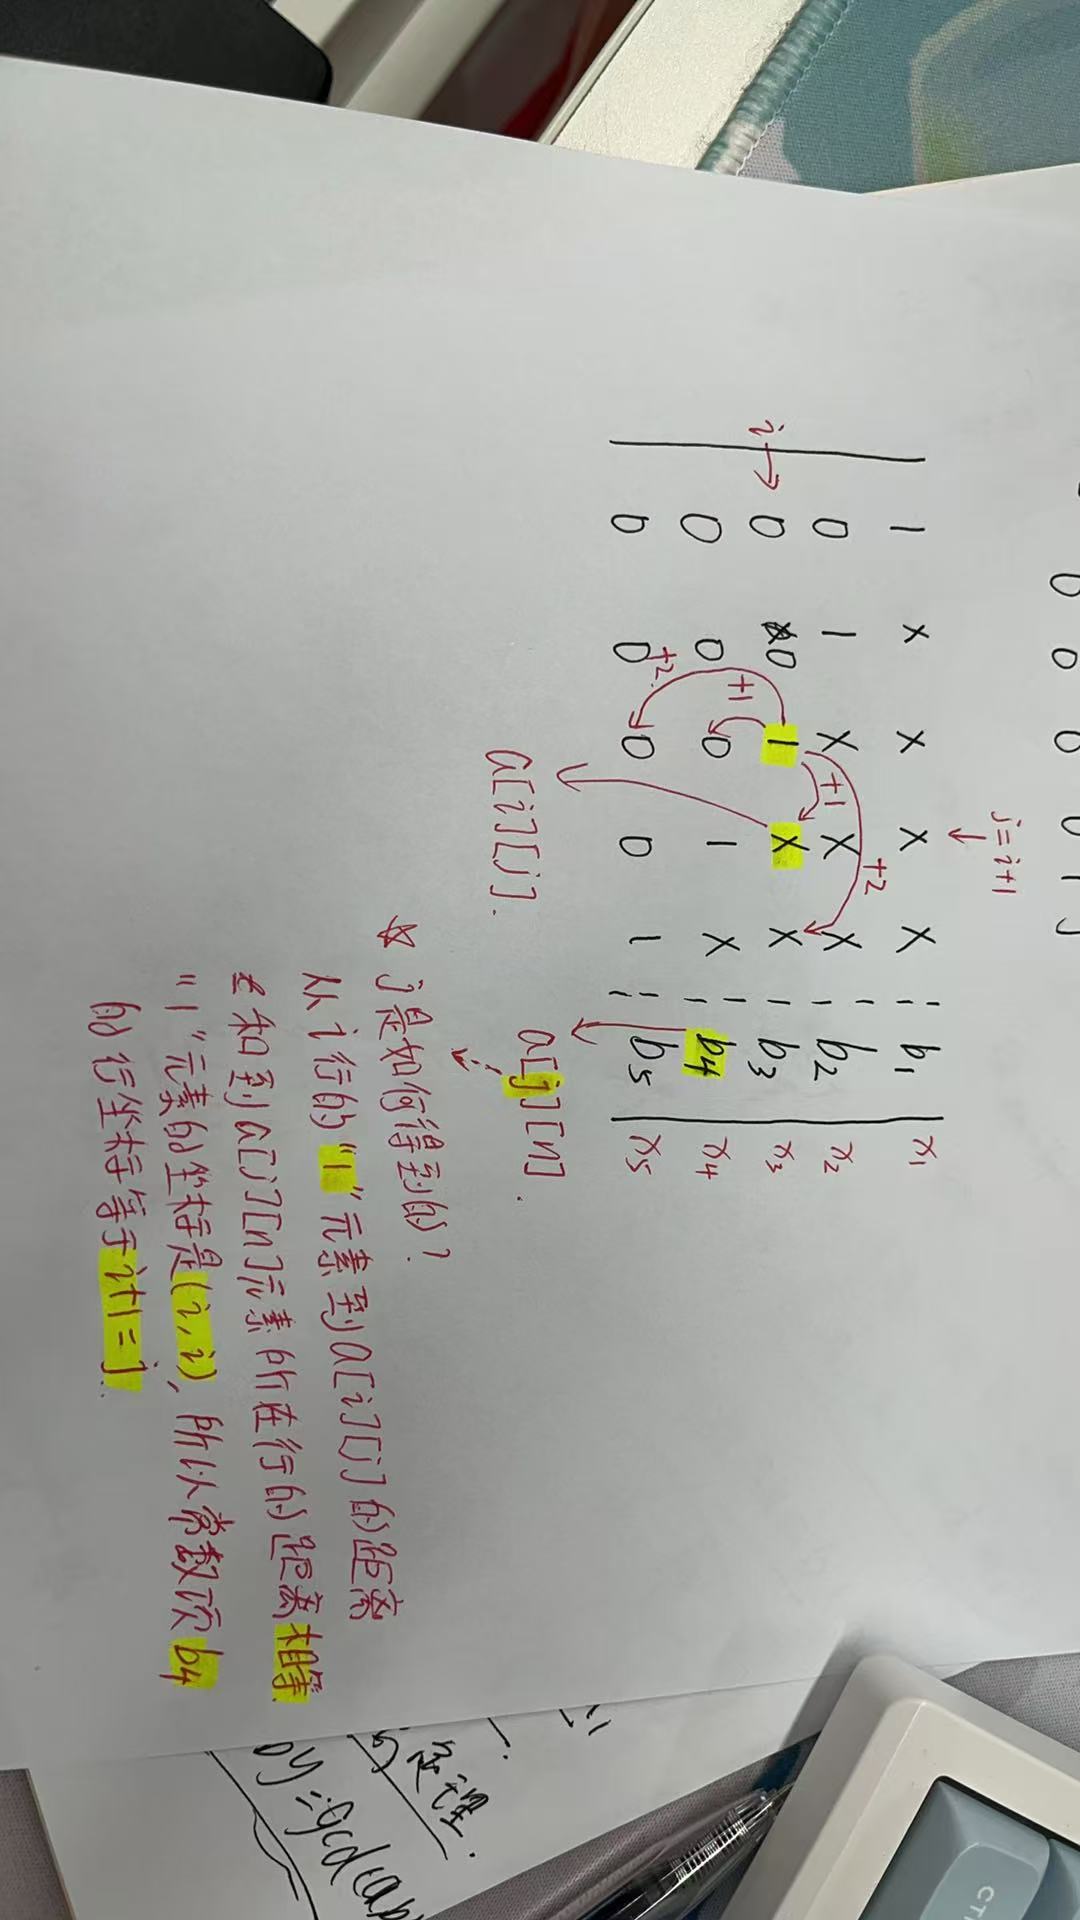 0 0 0 0 1
j=i+1
1 x x x x b1 x1
+2
0 1 x +1 x x b2 x2
i→ 0 0 1 x x b3 x3
+1
0 0 0 1 x b4 x4
+2
0 0 0 0 1 b5 x5
a[i][j].
a[j][n].
☆ j是如何得到的?
从i行的"1"元素到a[i][j]的距离
和到a[j][n]元素所在行的距离相等.
"1"元素的坐标是(i,i),所以常数项b4
的行坐标等于i+1=j.
定理.
by=gcd(a,b
CT